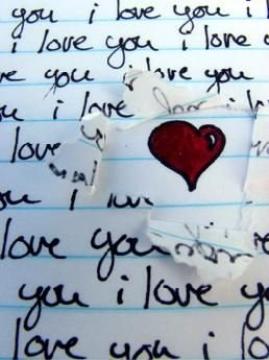 you i love you i
i love you i love
you i love you
you i love
love
i
love you
you i love y
love you i lo